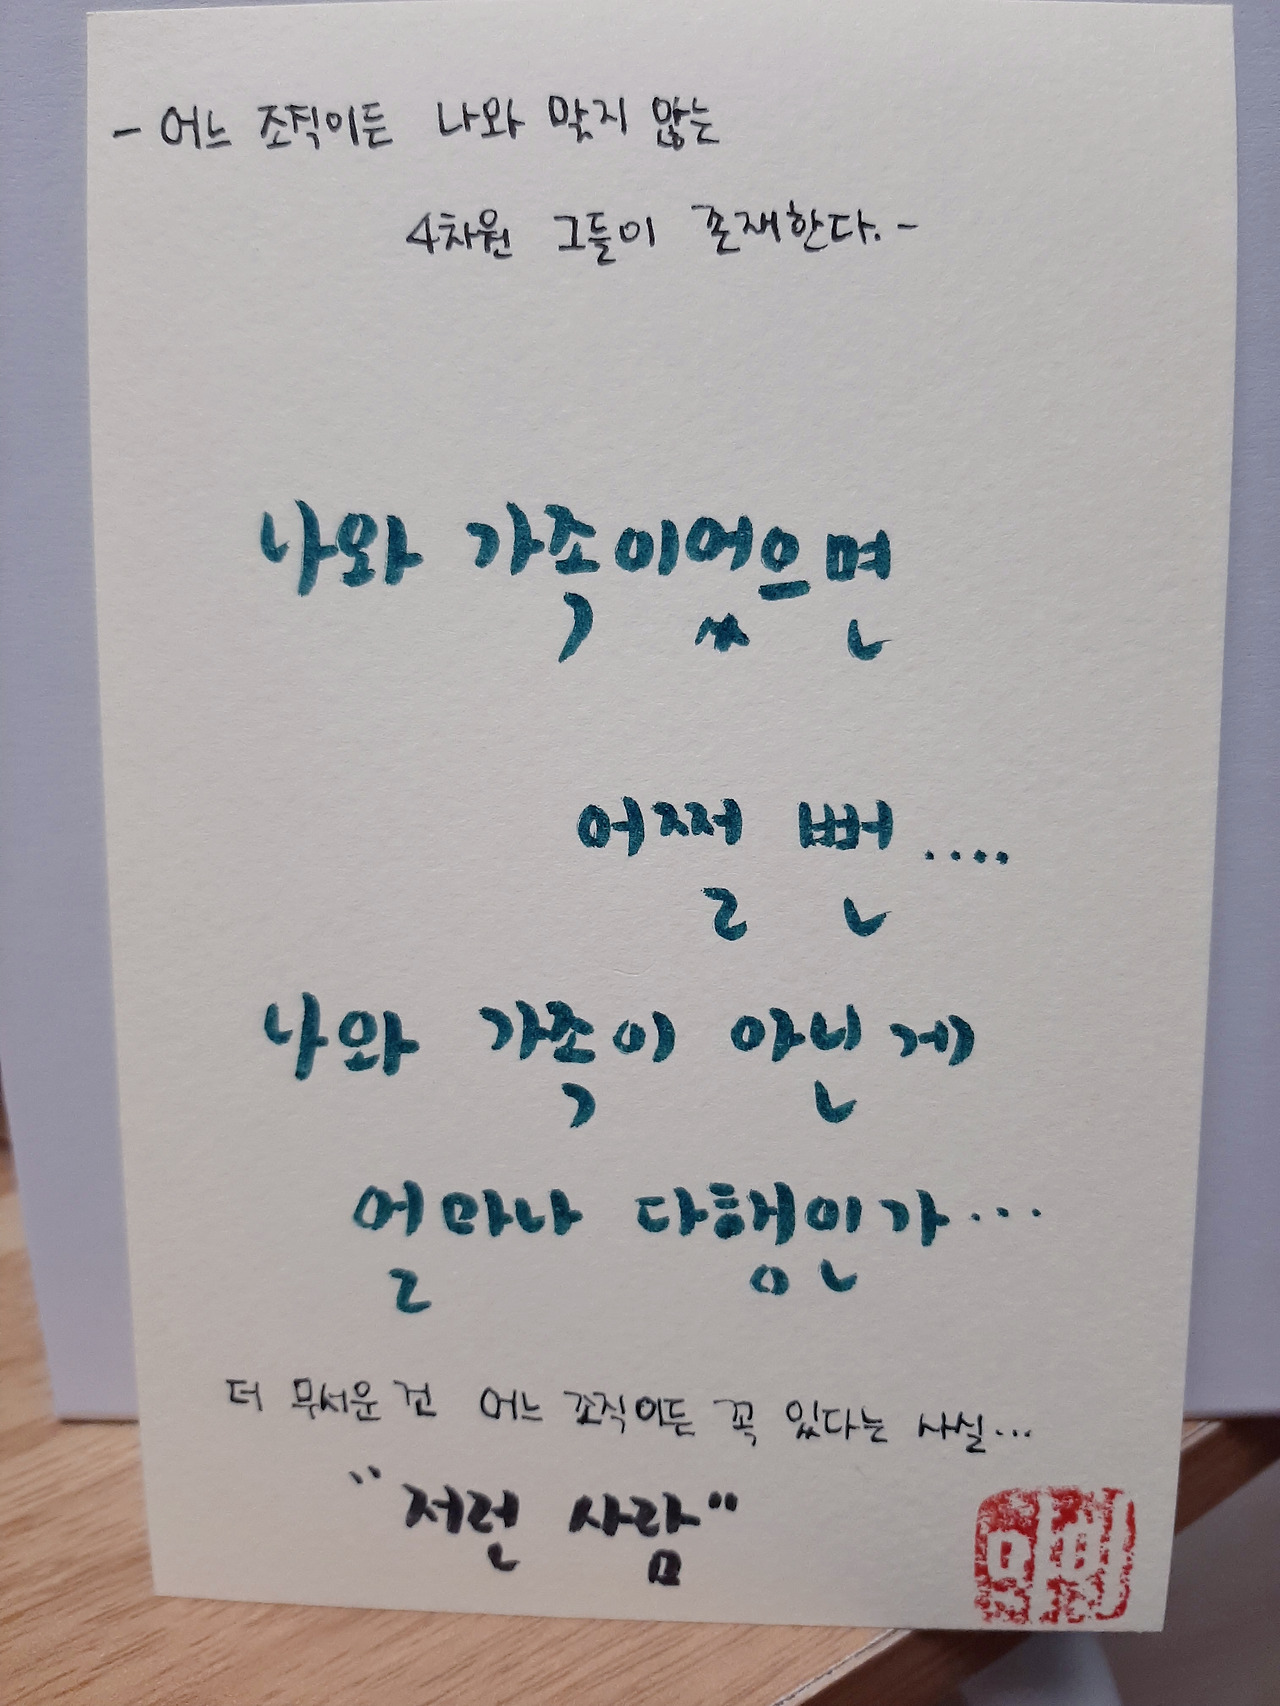 - 어느 조직이든 나와 맞지 않는
4차원 그들이 존재한다. -
나와 가족이었으면
어쩔 뻔....
나와 가족이 아닌게
얼마나 다행인가...
더 무서운 건 어느 조직이든 꼭 있다는 사실...
"저런 사람"